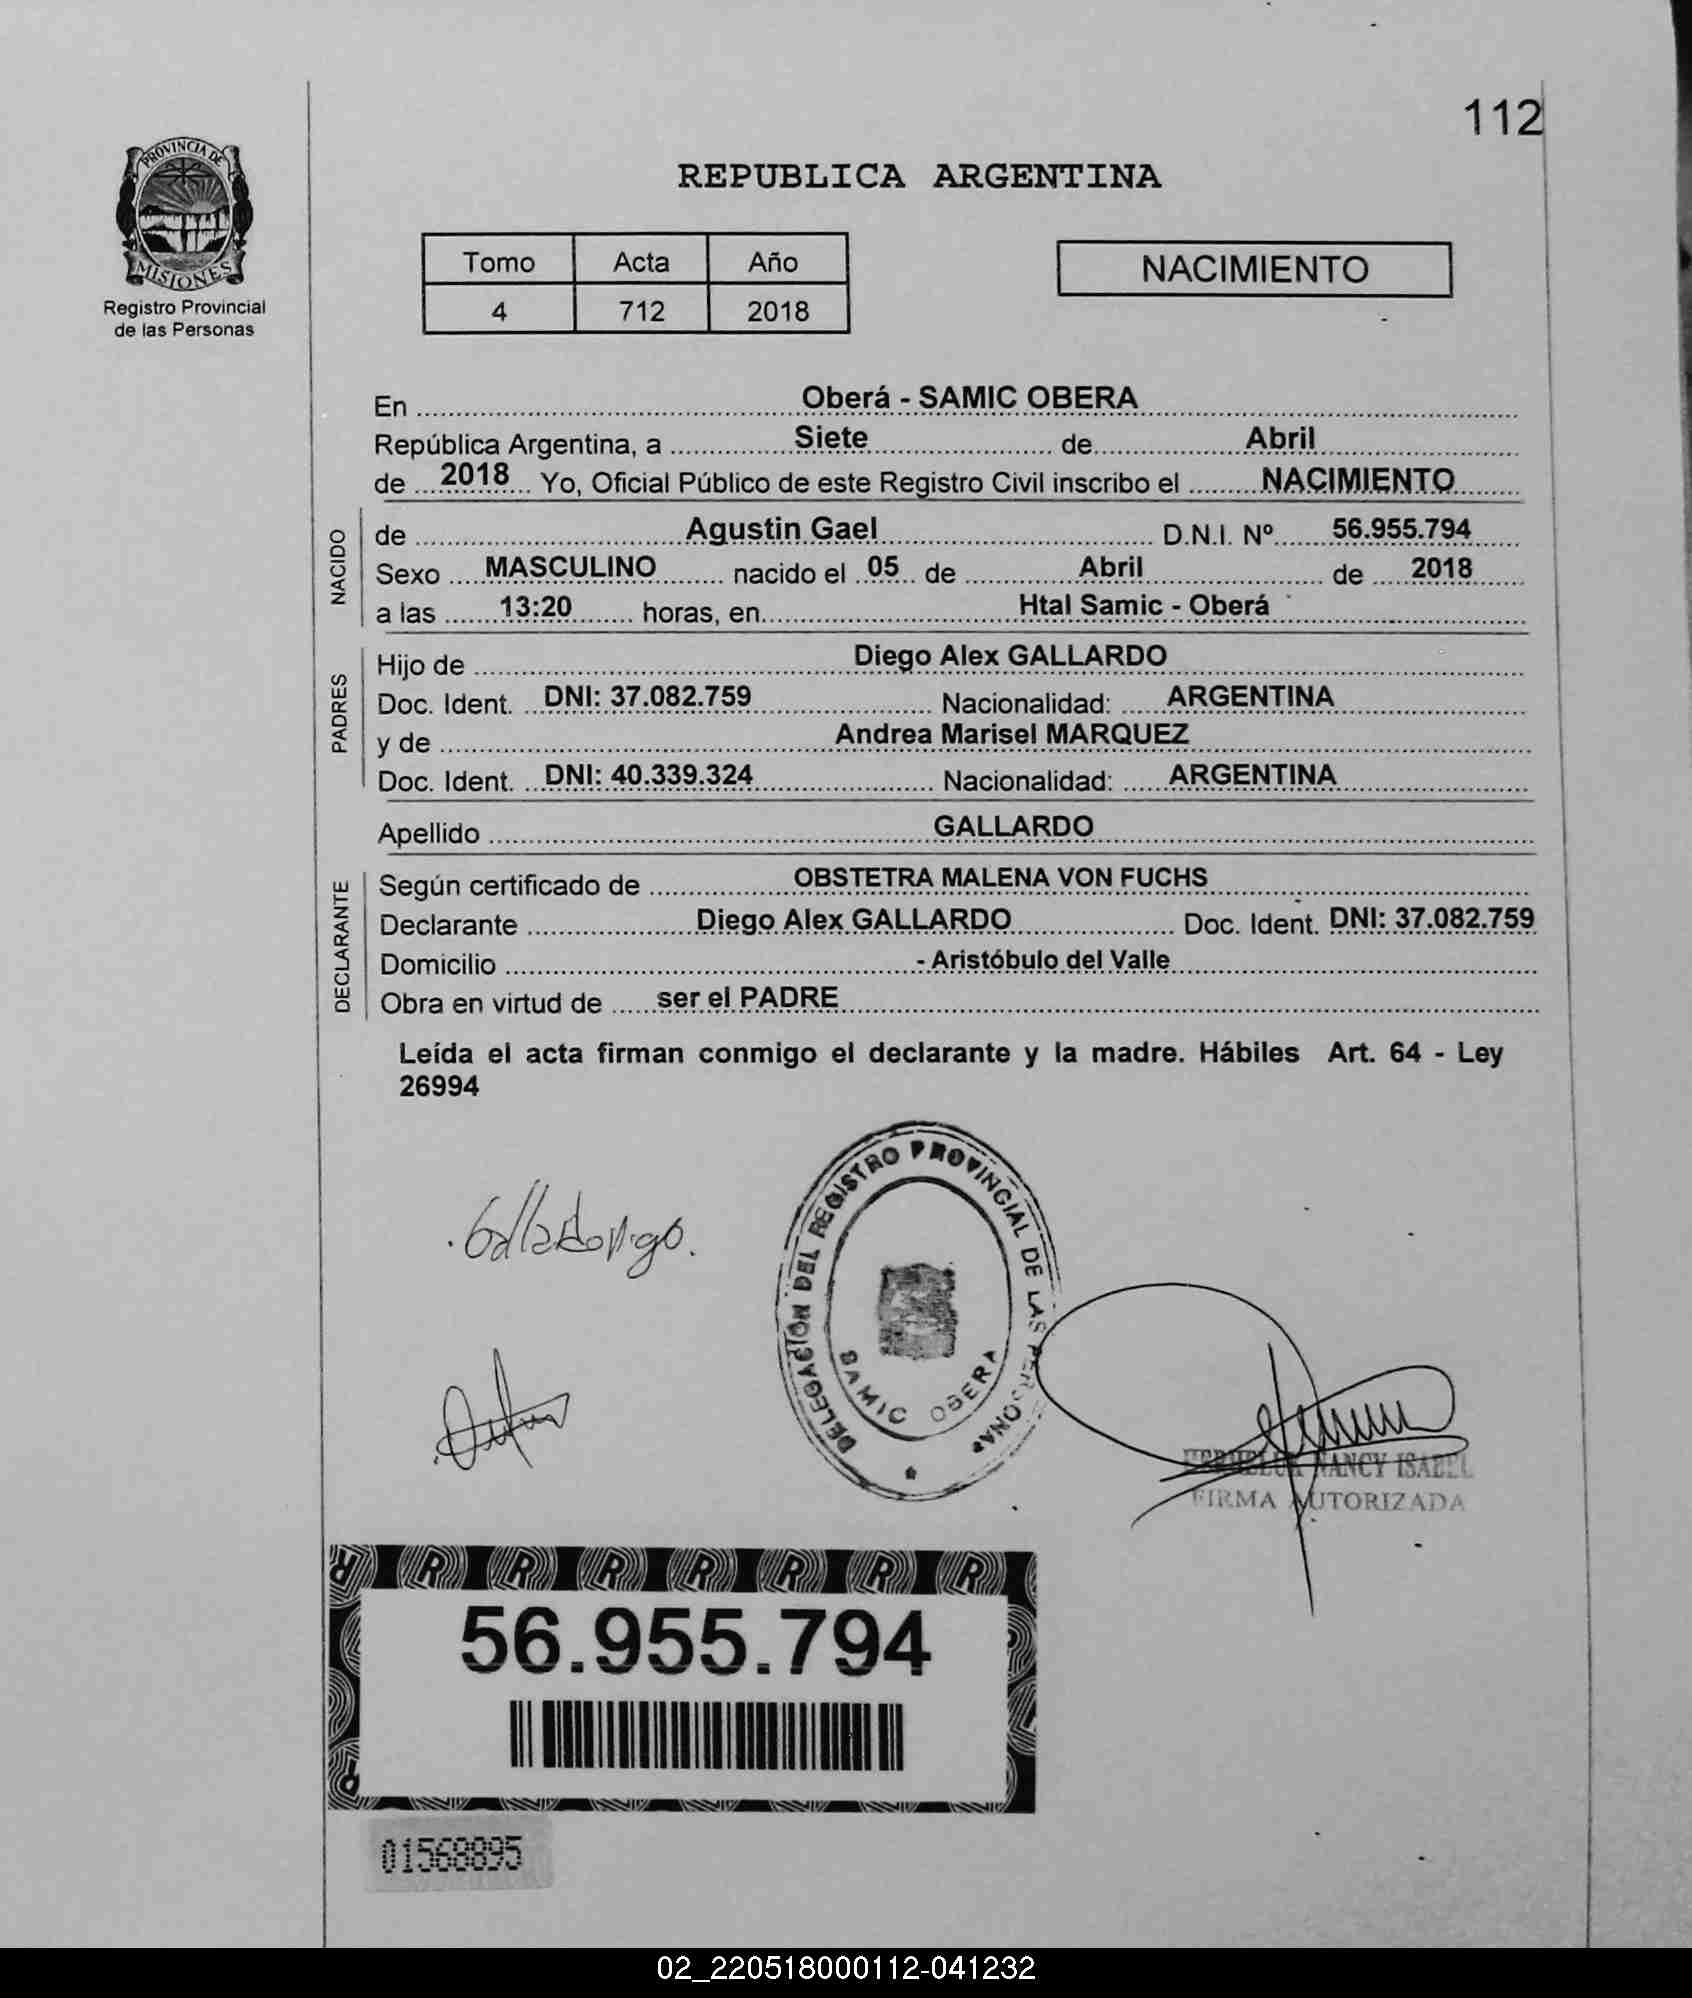 112
PROVINCIA DE
MISIONES
Registro Provincial
de las Personas
REPUBLICA ARGENTINA
Tomo Acta Año
4 712 2018
NACIMIENTO
En Oberá - SAMIC OBERA
República Argentina, a Siete de Abril
de 2018 Yo, Oficial Público de este Registro Civil inscribo el NACIMIENTO
NACIDO
de Agustin Gael D.N.I. Nº 56.955.794
Sexo MASCULINO nacido el 05 de Abril de 2018
a las 13:20 horas, en Htal Samic - Oberá
PADRES
Hijo de Diego Alex GALLARDO
Doc. Ident. DNI: 37.082.759 Nacionalidad: ARGENTINA
y de Andrea Marisel MARQUEZ
Doc. Ident. DNI: 40.339.324 Nacionalidad: ARGENTINA
Apellido GALLARDO
DECLARANTE
Según certificado de OBSTETRA MALENA VON FUCHS
Declarante Diego Alex GALLARDO Doc. Ident. DNI: 37.082.759
Domicilio - Aristóbulo del Valle
Obra en virtud de ser el PADRE
Leída el acta firman conmigo el declarante y la madre. Hábiles Art. 64 - Ley
26994
DELEGACIÓN DEL REGISTRO PROVINCIAL DE LAS PERSONAS
SAMIC OBERA
NANCY ISABEL
FIRMA AUTORIZADA
R R R R R R R
56.955.794
01568895
02_220518000112-041232